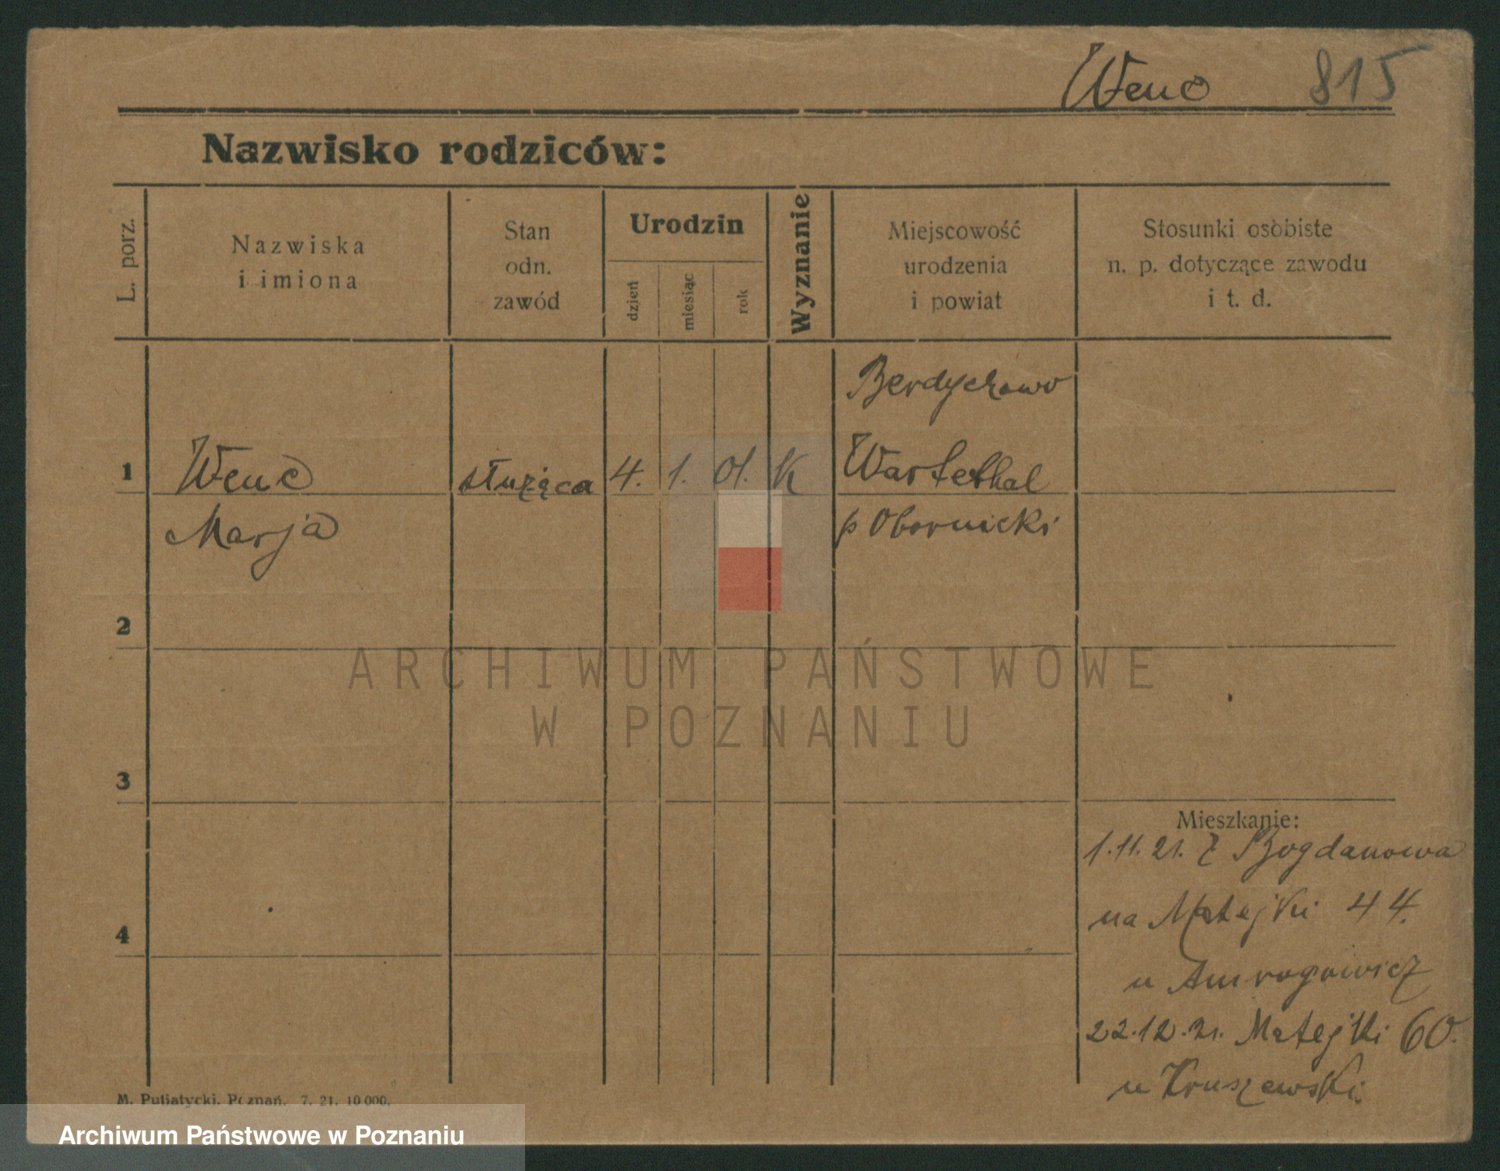 Wenc 815
Nazwisko rodziców:
L. porz.
Nazwiska
i imiona
Stan
odn.
zawód
Urodzin
dzień
miesiąc
rok
Wyznanie
Miejscowość
urodzenia
i powiat
Stosunki osobiste
n. p. dotyczące zawodu
i t. d.
Berdychowo
1 Wenc służąca 4. 1. 01. K Warthethal
Marja p Obornicki
2
3
4
Mieszkanie:
1.11.21. z Bogdanowa
na Matejki 44.
u
22.12.21. Matejki 60.
u Kruszewski.
M. Putiatycki, Poznań. 7. 21. 10 000.
ARCHIWUM PAŃSTWOWE
W POZNANIU
Archiwum Państwowe w Poznaniu